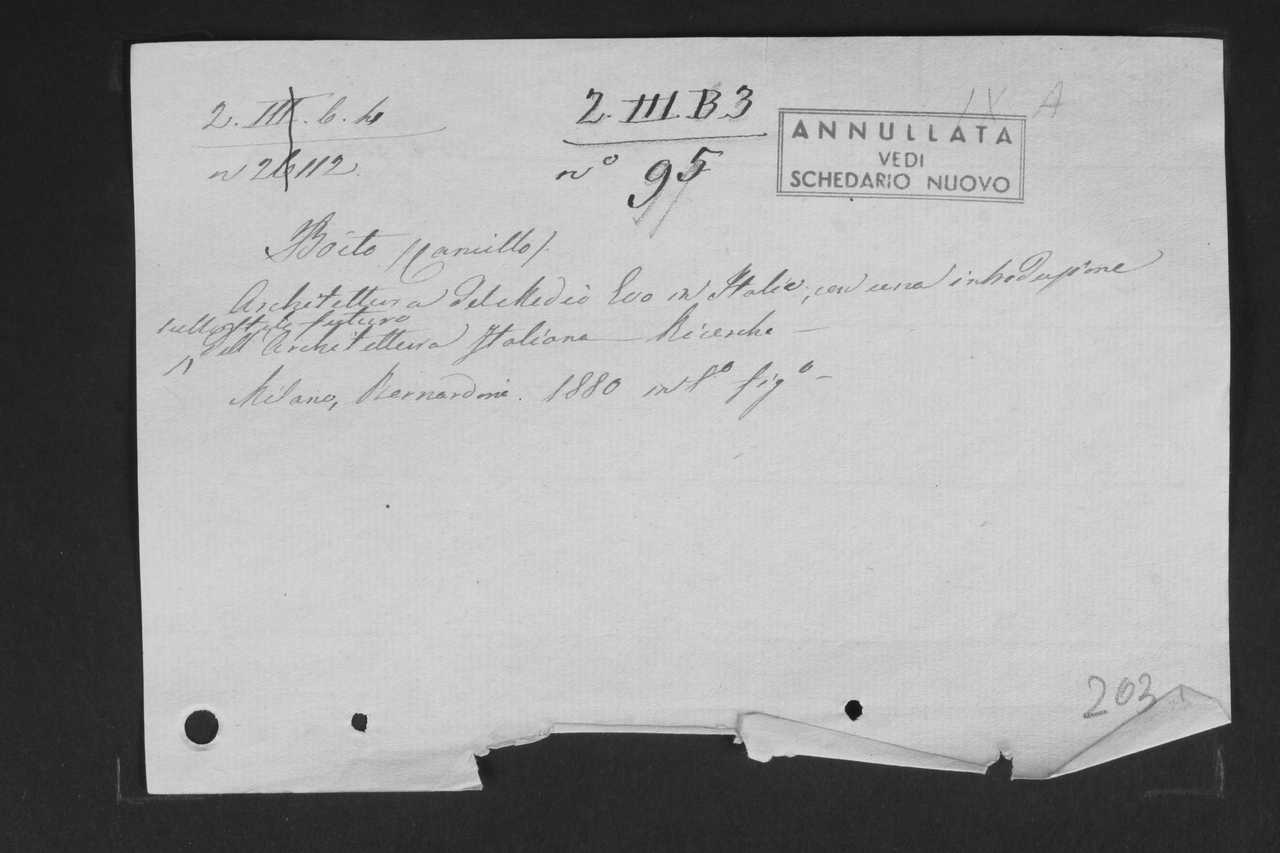 2. III. 6. 4
2. III. B 3
IX A
n 26112.
n° 95
ANNULLATA
VEDI
SCHEDARIO NUOVO
Boito (Camillo).
Architettura del Medio Evo in Italia, con una introduzione
sullo stile futuro
dell'Architettura Italiana – Ricerche –
Milano, Bernardoni. 1880 in 8° fig° –
203